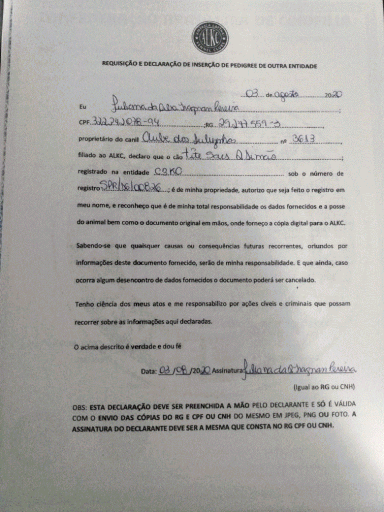 ALKC
REQUISIÇÃO E DECLARAÇÃO DE INSERÇÃO DE PEDIGREE DE OUTRA ENTIDADE
03 de agosto 2020
Eu Juliana da Silva Pereira
CPF: RG:
proprietário do canil Clube dos nº 3613
filiado ao ALKC, declaro que o cão
registrado na entidade sob o número de
registro ; é de minha propriedade, autorizo que seja feito o registro em
meu nome, e reconheço que é de minha total responsabilidade os dados fornecidos e a posse
do animal bem como o documento original em mãos, onde forneço a cópia digital para o ALKC.
Sabendo-se que quaisquer causas ou consequências futuras recorrentes, oriundos por
informações deste documento fornecido, serão de minha responsabilidade. E que ainda, caso
ocorra algum desencontro de dados fornecidos o documento poderá ser cancelado.
Tenho ciência dos meus atos e me responsabilizo por ações cíveis e criminais que possam
recorrer sobre as informações aqui declaradas.
O acima descrito é verdade e dou fé
Data: 03/08/2020 Assinatura Juliana da Pereira
(Igual ao RG ou CNH)
OBS: ESTA DECLARAÇÃO DEVE SER PREENCHIDA A MÃO PELO DECLARANTE E SÓ É VÁLIDA
COM O ENVIO DAS CÓPIAS DO RG E CPF OU CNH DO MESMO EM JPEG, PNG OU FOTO. A
ASSINATURA DO DECLARANTE DEVE SER A MESMA QUE CONSTA NO RG CPF OU CNH.